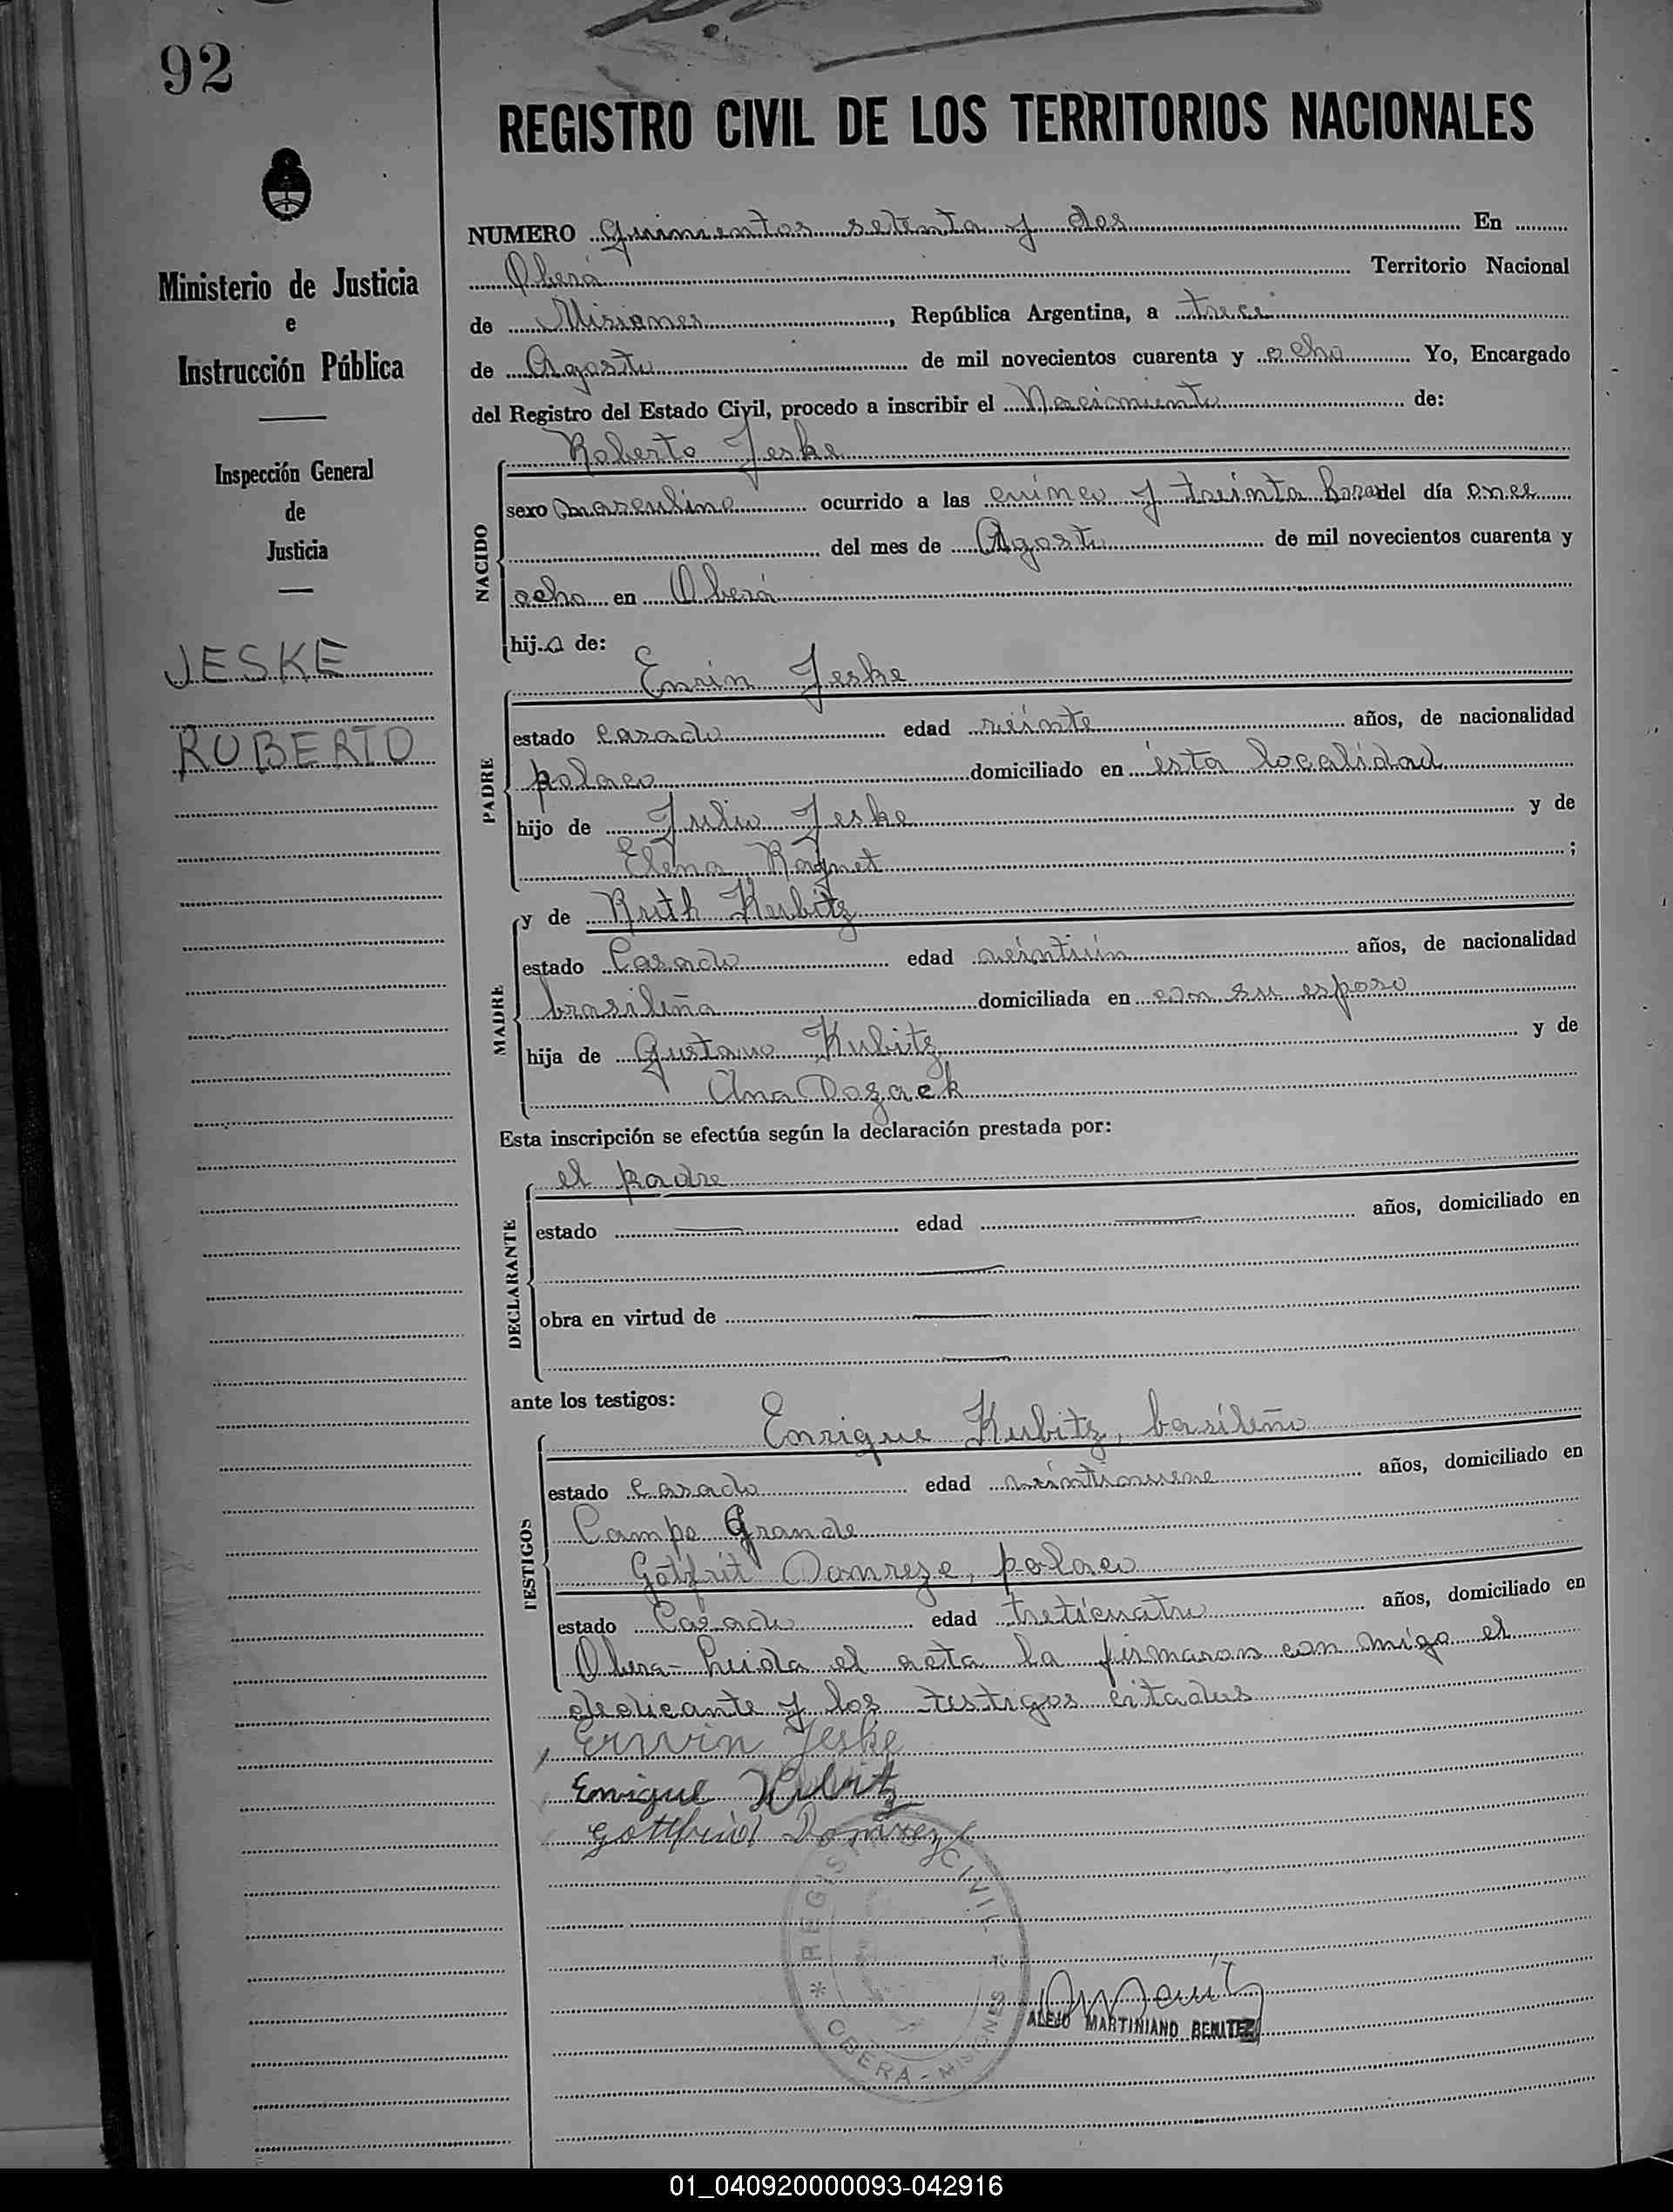 92
REGISTRO CIVIL DE LOS TERRITORIOS NACIONALES
Ministerio de Justicia
e
Instrucción Pública
Inspección General
de
Justicia
JESKE
ROBERTO
NUMERO quinientos setenta y dos En
Oberá Territorio Nacional
de Misiones, República Argentina, a trece
de Agosto de mil novecientos cuarenta y ocho Yo, Encargado
del Registro del Estado Civil, procedo a inscribir el Nacimiento de:
Roberto Jeske
NACIDO
sexo masculino ocurrido a las cuinco y treinta horas del día once
del mes de Agosto de mil novecientos cuarenta y
ocho en Oberá
hijo de:
PADRE
Ervin Jeske
estado casado edad veinte años, de nacionalidad
polaco domiciliado en ésta localidad
hijo de Julio Jeske y de
Elena ;
MADRE
y de Ruth Kubitz
estado Casado edad veintiún años, de nacionalidad
brasileña domiciliada en con su esposo
hija de Gustavo Kubitz y de
Ana Dozack
Esta inscripción se efectúa según la declaración prestada por:
DECLARANTE
el padre
estado edad años, domiciliado en
obra en virtud de
ante los testigos:
TESTIGOS
Enrique Kubitz, basileño
estado casado edad veintinueve años, domiciliado en
Campo Grande
Gotfrit polaco
estado Casado edad treticuatro años, domiciliado en
Obera- Leida el acta la firmaron con migo el
y los testigos citados
Erwin Jeske
Enrique Kubitz
Gottfried
REGISTRO CIVIL
OBERA - MISIONES
ALEJO MARTINIANO BENITEZ
01_040920000093-042916